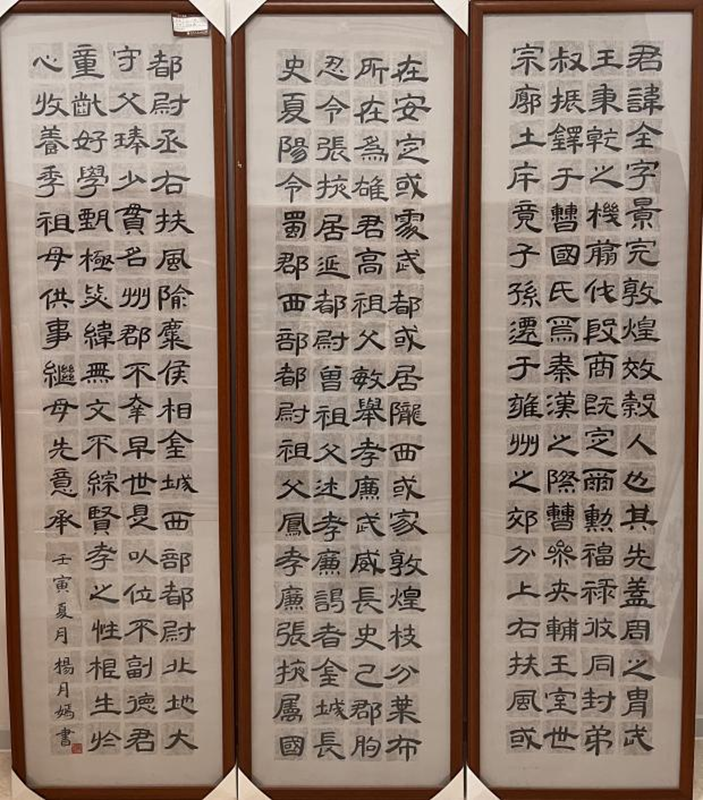 君諱全字景完敦煌效穀人也其先蓋周之冑武
王秉乾之機翦伐殷商既定爾勳福祿攸同封弟
叔振鐸于曹國氏焉秦漢之際曹參夾輔王室世
宗廓土斥竟子孫遷于雍州之郊分止右扶風或
在安定或處武都或居隴西或家敦煌枝分葉布
所在為雄君高祖父敏舉孝廉武威長史巴郡朐
忍令張掖居延都尉曾祖父述孝廉謁者金城長
史夏陽令蜀郡西部都尉祖父鳳孝廉張掖屬國
都尉丞右扶風隃麋侯相金城西部都尉北地大
守父琫少貫名州郡不幸早世是以位不副德君
童齔好學甄極毖緯無文不綜賢孝之性根生於
心收養季祖母供事繼母先意承
壬寅夏月楊月嫣書